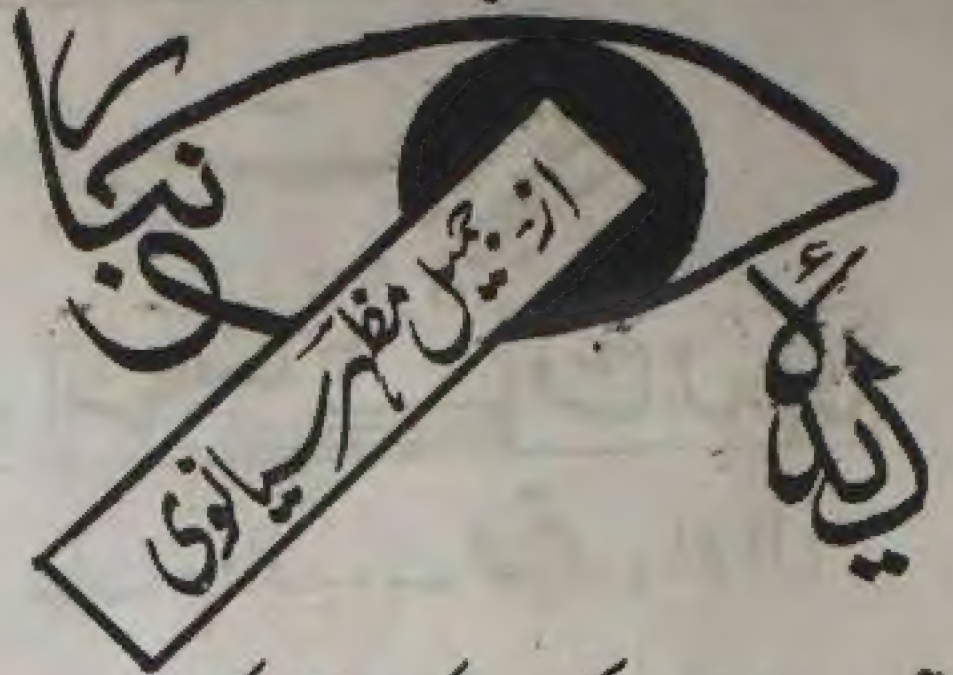 دیدۂ خونبار
از۔ جمیل مظہر سیانوی